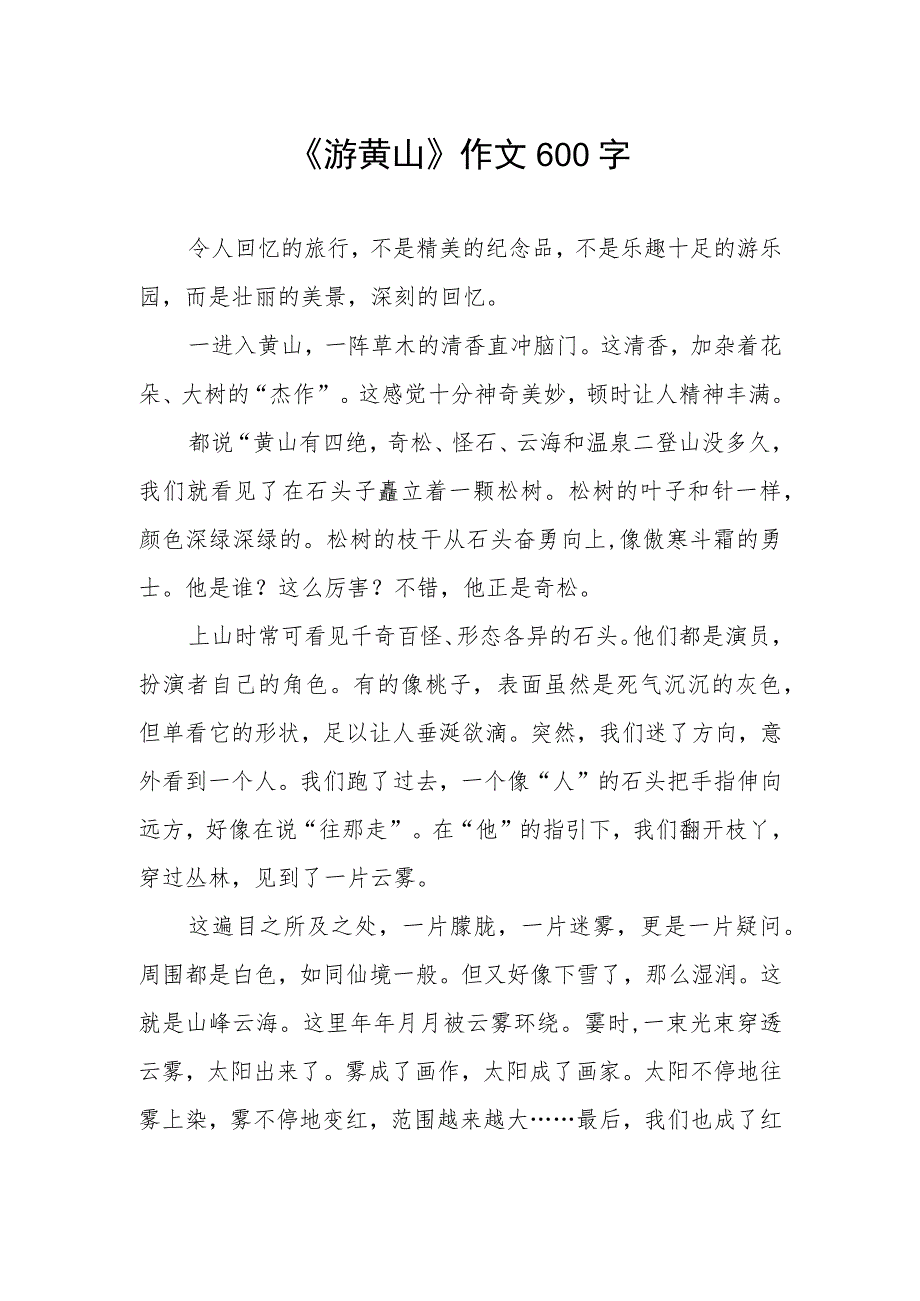 《游黄山》作文600字
令人回忆的旅行，不是精美的纪念品，不是乐趣十足的游乐
园，而是壮丽的美景，深刻的回忆。
一进入黄山，一阵草木的清香直冲脑门。这清香，加杂着花
朵、大树的“杰作”。这感觉十分神奇美妙，顿时让人精神丰满。
都说“黄山有四绝，奇松、怪石、云海和温泉二登山没多久，
我们就看见了在石头子矗立着一颗松树。松树的叶子和针一样，
颜色深绿深绿的。松树的枝干从石头奋勇向上,像傲寒斗霜的勇
士。他是谁？这么厉害？不错，他正是奇松。
上山时常可看见千奇百怪、形态各异的石头。他们都是演员，
扮演者自己的角色。有的像桃子，表面虽然是死气沉沉的灰色，
但单看它的形状，足以让人垂涎欲滴。突然，我们迷了方向，意
外看到一个人。我们跑了过去，一个像“人”的石头把手指伸向
远方，好像在说“往那走”。在“他”的指引下，我们翻开枝丫，
穿过丛林，见到了一片云雾。
这遍目之所及之处，一片朦胧，一片迷雾，更是一片疑问。
周围都是白色，如同仙境一般。但又好像下雪了，那么湿润。这
就是山峰云海。这里年年月月被云雾环绕。霎时,一束光束穿透
云雾，太阳出来了。雾成了画作，太阳成了画家。太阳不停地往
雾上染，雾不停地变红，范围越来越大……最后，我们也成了红